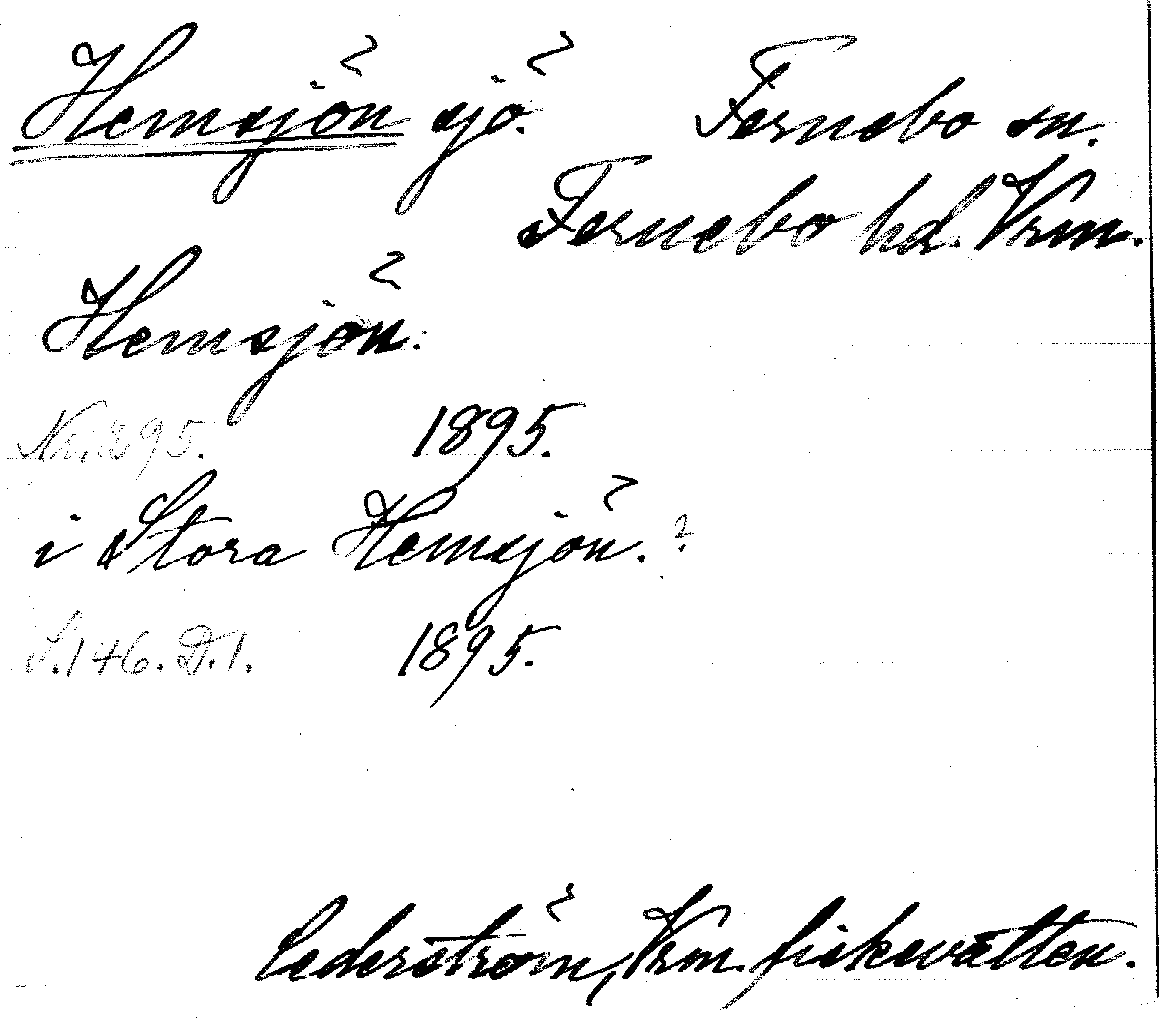 Hemsjön sjö. Fernebo sn.
Fernebo hd. Vrm.
Hemsjön.
Nr. 395. 1895.
i Stora Hemsjön. ?
S. 146. D. 1. 1895.
Cederström, Vrm. fiskevatten.